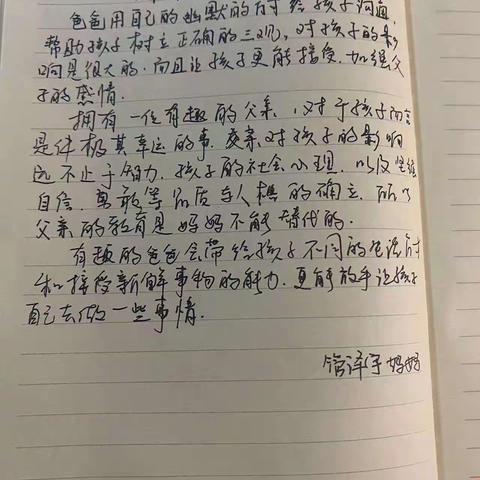 爸爸用自己的幽默的方式给孩子沟通,
帮助孩子树立正确的三观,对孩子的影
响是很大的.而且让孩子更能接受.加强父
子的感情.
拥有一位有趣的父亲,对于孩子而言
是件极其幸运的事.父亲对孩子的影响
远不止于智力.孩子的社会心理.以及坚强
自信.勇敢等品质与人格的确立.所以
父亲的教育是妈妈不能替代的.
有趣的爸爸会带给孩子不同的生活
和接受新鲜事物的能力.更能放手让孩子
自己去做一些事情.
管泽宇妈妈